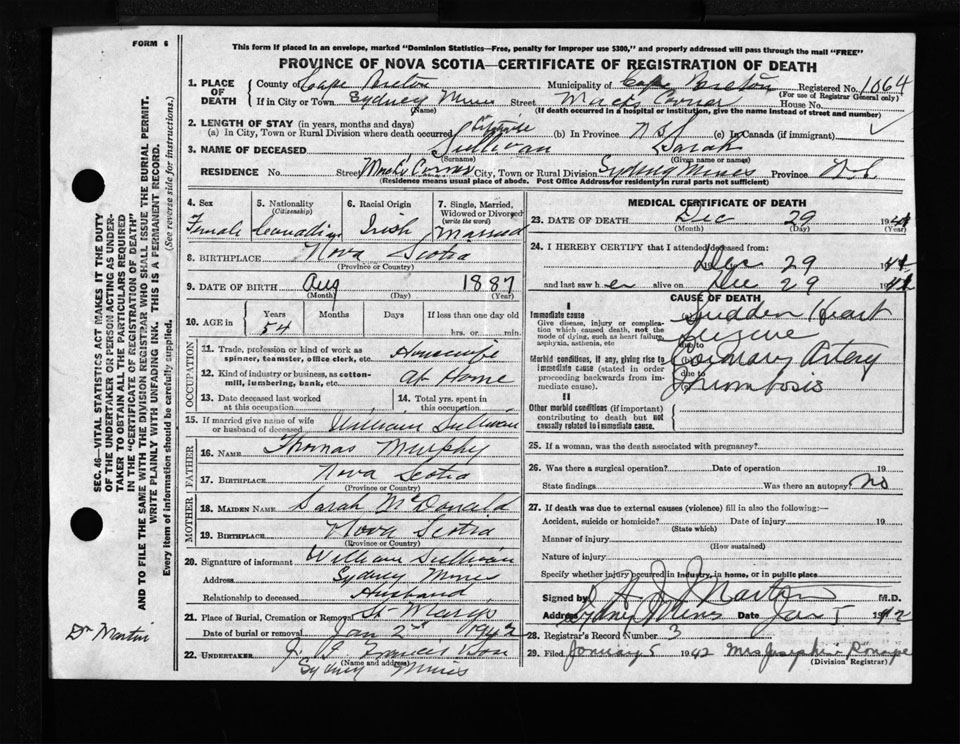 FORM 6
This form if placed in an envelope, marked "Dominion Statistics—Free, penalty for improper use $300," and properly addressed will pass through the mail "FREE"
PROVINCE OF NOVA SCOTIA—CERTIFICATE OF REGISTRATION OF DEATH
SEC. 46—VITAL STATISTICS ACT MAKES IT THE DUTY
OF THE UNDERTAKER OR PERSON ACTING AS UNDER-
TAKER TO OBTAIN ALL THE PARTICULARS REQUIRED
IN THE "CERTIFICATE OF REGISTRATION OF DEATH"
AND TO FILE THE SAME WITH THE DIVISION REGISTRAR WHO SHALL ISSUE THE BURIAL PERMIT.
WRITE PLAINLY WITH UNFADING INK. THIS IS A PERMANENT RECORD.
Every item of information should be carefully supplied. (See reverse side for instructions.)
1. PLACE OF DEATH County of Cape Breton Municipality of Cape Breton Registered No. 1064
(For use of Registrar General only)
If in City or Town Sydney Mines Street Mack's Corner House No.
(Name) (If death occurred in a hospital or institution, give the name instead of street and number)
2. LENGTH OF STAY (in years, months and days)
(a) In City, Town or Rural Division where death occurred Lifetime (b) In Province N S (c) In Canada (if immigrant) ✓
3. NAME OF DECEASED Sullivan Sarah
(Surname) (Given name or names)
RESIDENCE No. Street Mack's Corner City, Town or Rural Division Sydney Mines Province N.S.
(Residence means usual place of abode. Post Office Address for residents in rural parts not sufficient)
4. Sex Female
5. Nationality (Citizenship) Canadian
6. Racial Origin Irish
7. Single, Married, Widowed or Divorced (write the word) Married
8. BIRTHPLACE Nova Scotia
(Province or Country)
9. DATE OF BIRTH Aug 1887
(Month) (Day) (Year)
10. AGE in Years 54 Months Days If less than one day old hrs. or min.
OCCUPATION
11. Trade, profession or kind of work as spinner, teamster, office clerk, etc. Housewife
12. Kind of industry or business, as cotton-mill, lumbering, bank, etc. At Home
13. Date deceased last worked at this occupation
14. Total yrs. spent in this occupation
15. If married give name of wife or husband of deceased William Sullivan
FATHER
16. NAME Thomas Murphy
17. BIRTHPLACE Nova Scotia
(Province or Country)
MOTHER
18. MAIDEN NAME Sarah McDonald
19. BIRTHPLACE Nova Scotia
(Province or Country)
20. Signature of informant William Sullivan
Address Sydney Mines
Relationship to deceased Husband
21. Place of Burial, Cremation or Removal St Mary's
Date of burial or removal Jan 2nd 1942
22. UNDERTAKER J. Francis & Son
(Name and address)
Sydney Mines
Dr Martin
MEDICAL CERTIFICATE OF DEATH
23. DATE OF DEATH Dec 29 1941
(Month) (Day) (Year)
24. I HEREBY CERTIFY that I attended deceased from:
Dec 29 1941
and last saw her alive on Dec 29 1941
CAUSE OF DEATH
I
Immediate cause
Give disease, injury or complication which caused death, not the mode of dying, such as heart failure, asphyxia, asthenia, etc
(a) Sudden Heart Seizure
due to
Morbid conditions, if any, giving rise to immediate cause (stated in order proceeding backwards from immediate cause).
(b) Coronary Artery
due to
Thrombosis
II
Other morbid conditions (if important) contributing to death but not causally related to immediate cause.
25. If a woman, was the death associated with pregnancy?
26. Was there a surgical operation? Date of operation 19
State findings Was there an autopsy? no
27. If death was due to external causes (violence) fill in also the following:—
Accident, suicide or homicide? Date of injury 19
(State which)
Manner of injury
(How sustained)
Nature of injury
Specify whether injury occurred in industry, in home, or in public place
Signed by Martin M.D.
Address Sydney Mines Date Jan 1 1942
28. Registrar's Record Number 3
29. Filed January 5 1942 Mrs Josephine
(Division Registrar)